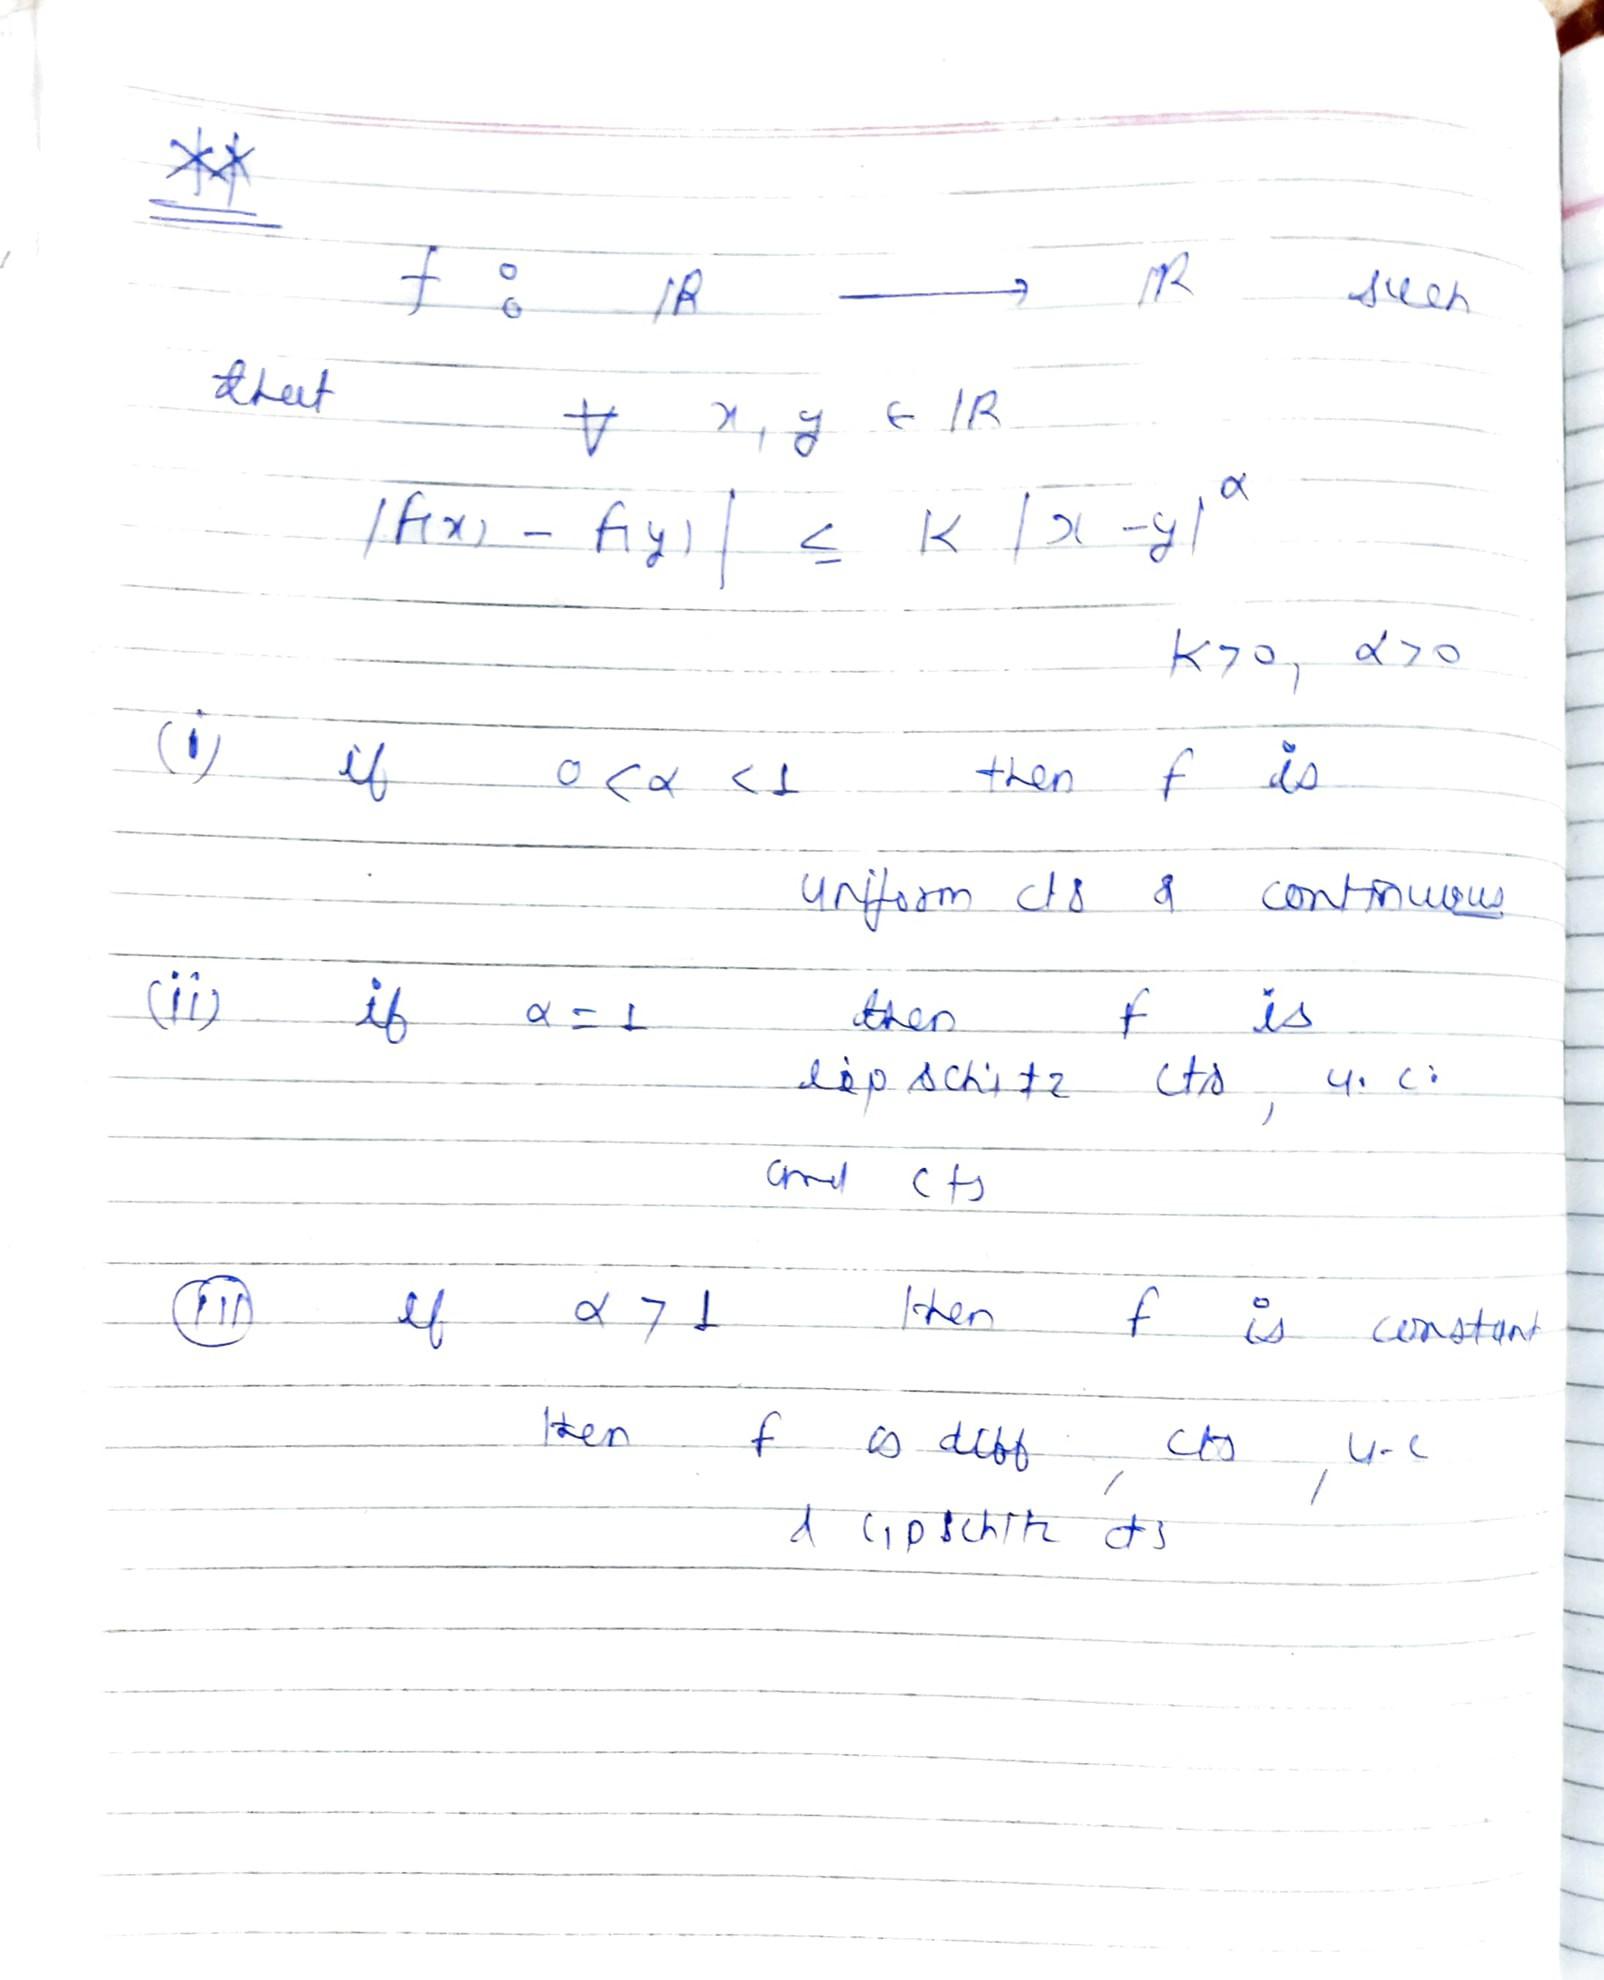 **
f : IR ⟶ IR such
that ∀ x, y ∈ IR
|f(x) - f(y)| ≤ K |x-y|^α
K>0, α>0
(i) if 0<α<1 then f is
uniform cts & continuous
(ii) if α=1 then f is
lipschitz cts, u.c.
and cts
(iii) if α>1 then f is constant
then f is diff, cts, u.c
& lipschitz cts